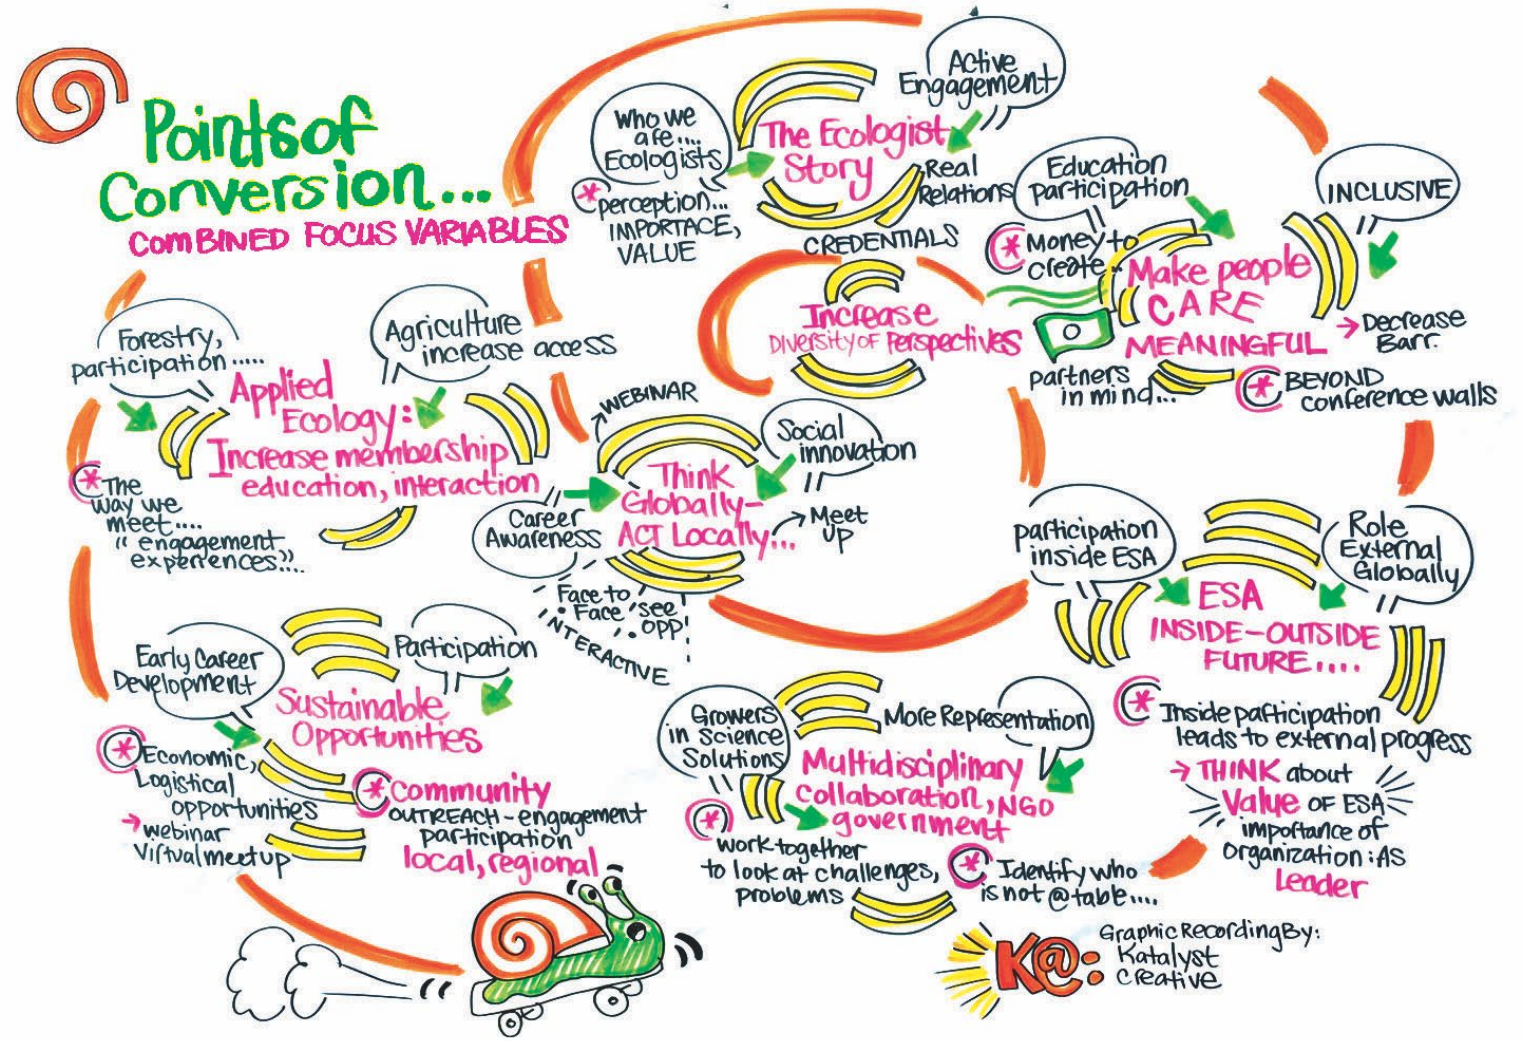 Points of
Conversion...
COMBINED FOCUS VARIABLES
Who we
are....
Ecologists
* perception...
IMPORTACE,
VALUE
The Ecologist
Story
Active
Engagement
Real
Relations
CREDENTIALS
Increase
DIVERSITY OF Perspectives
Education
participation
* Money to
create..
Make people
CARE
MEANINGFUL
INCLUSIVE
→ Decrease
Barr.
partners
in mind...
* BEYOND
conference walls
Forestry,
participation.....
Agriculture
increase access
Applied
Ecology:
Increase membership
education, interaction
* The
way we
meet....
"engagement
experiences"...
WEBINAR
Social
innovation
Think
Globally-
ACT Locally...
Career
Awareness
Meet
UP
Face to
Face 'see
OPP!
INTERACTIVE
participation
inside ESA
Role
External
Globally
ESA
INSIDE-OUTSIDE
FUTURE....
* Inside participation
leads to external progress
→ THINK about
Value OF ESA
importance of
Organization: AS
Leader
Early Career
Development
Participation
Sustainable
Opportunities
* Economic,
Logistical
opportunities
→ webinar
Virtual meetup
* Community
OUTREACH-engagement
participation
local, regional
Growers
in Science
Solutions
More Representation
Multidisciplinary
collaboration, NGO
government
* work together
to look at challenges,
problems
* Identify who
is not @ table....
K@:
Graphic Recording By:
Katalyst
Creative